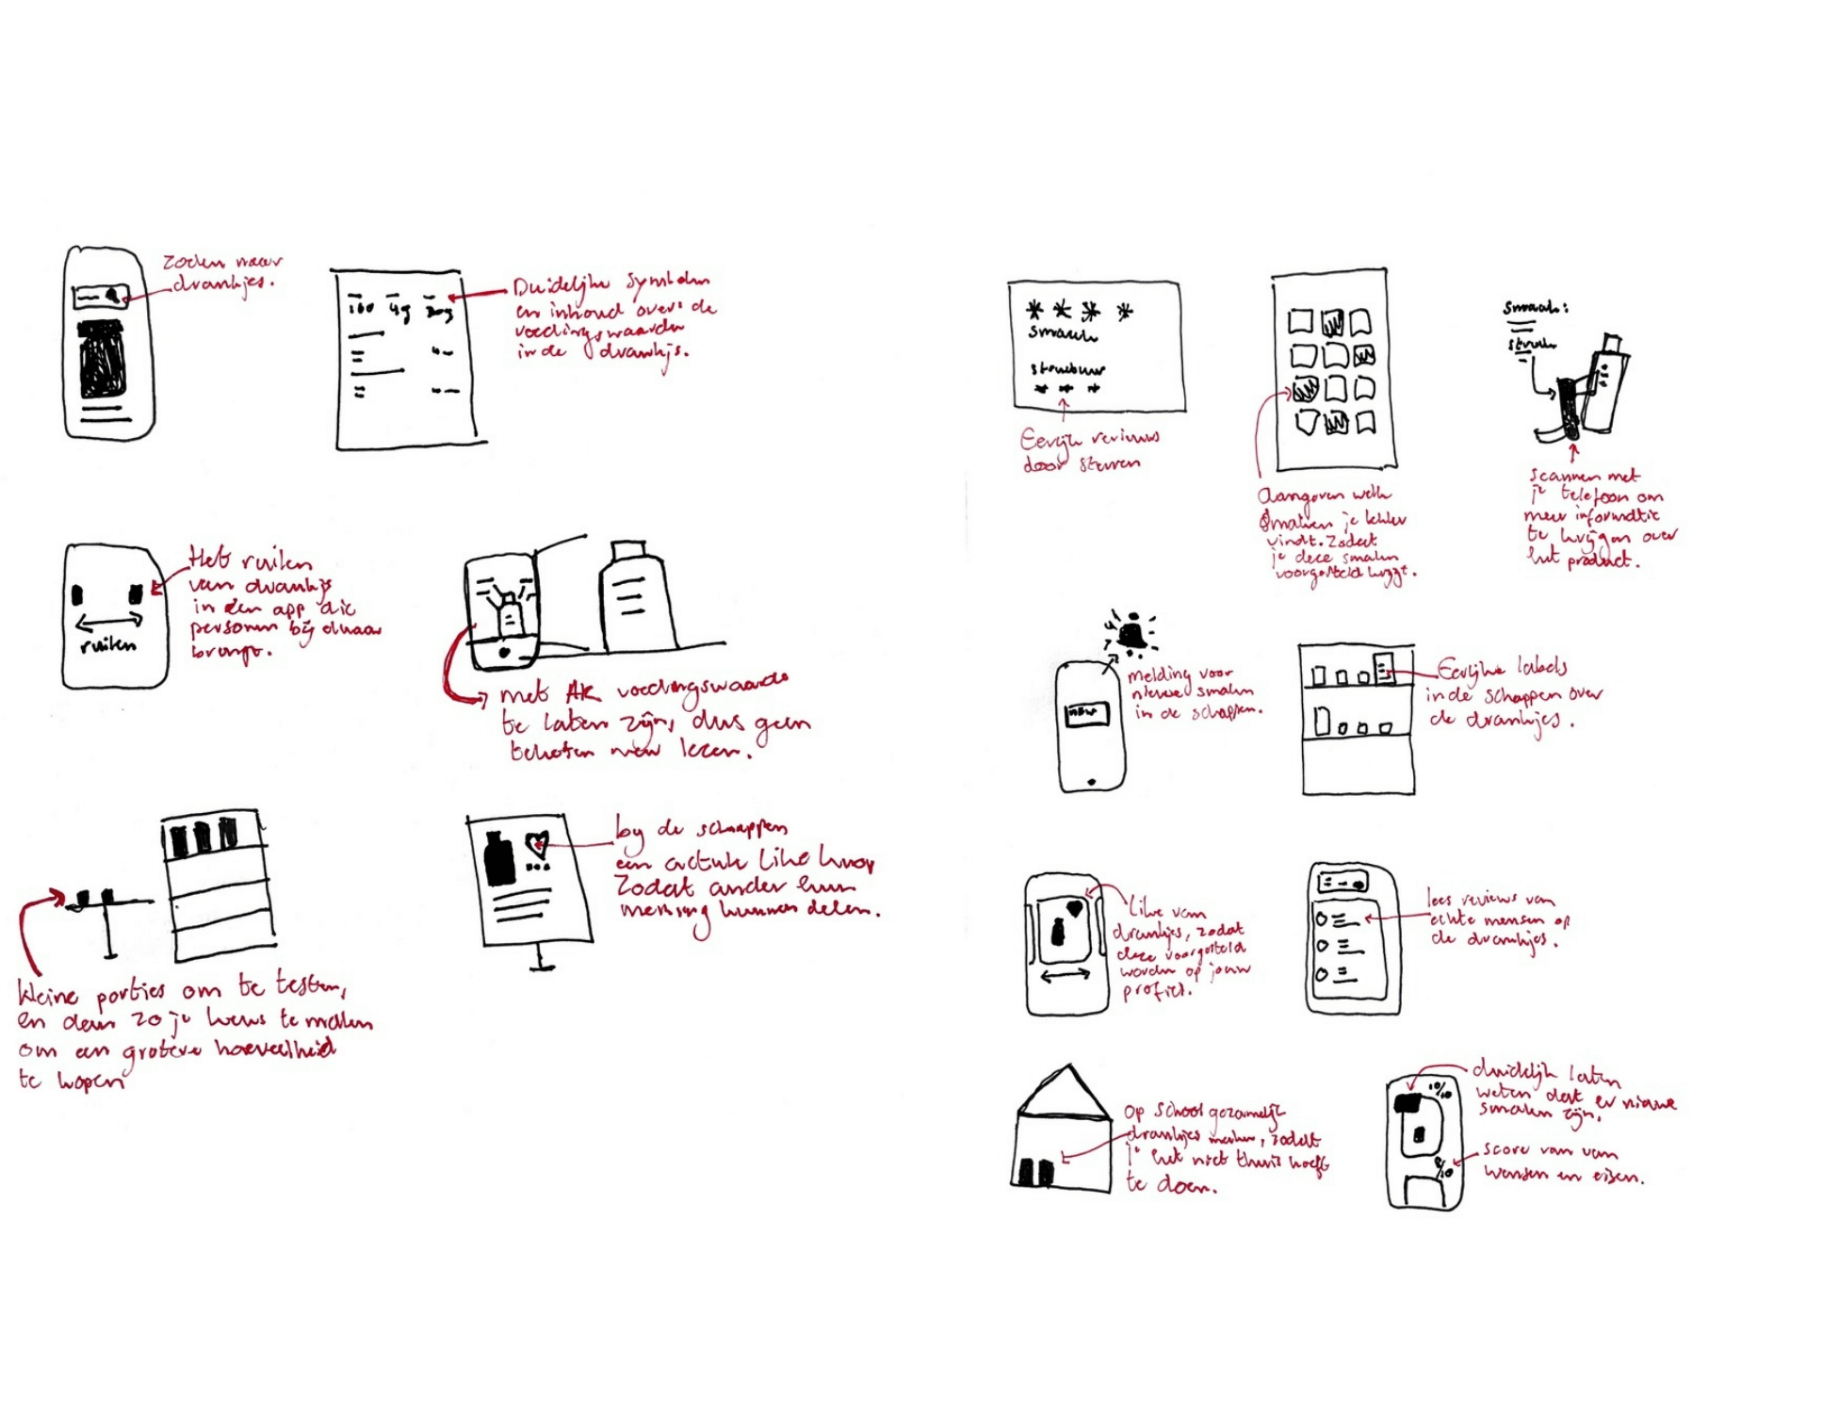 Zoeken naar
drankjes.
100 4g 20g
Duidelijke symbolen
en inhoud over de
voedingswaarden
in de drankjes.
ruilen
Het ruilen
van drankjes
in een app die
personen bij elkaar
brengt.
met AR voedingswaarde
te laten zijn, dus geen
teksten meer lezen.
kleine porties om te testen,
en dan zo je keus te maken
om een grotere hoeveelheid
te kopen
bij de schappen
een actuele like knop
zodat ander hun
mening kunnen delen.
smaak
structuur
Eerlijke reviews
door sturen
Aangeven welke
smaken je lekker
vindt. Zodat
je deze smaken
voorgesteld krijgt.
smaak:
scannen met
je telefoon om
meer informatie
te krijgen over
het product.
new
melding voor
nieuwe smaken
in de schappen.
Eerlijke labels
in de schappen over
de drankjes.
Like van
drankjes, zodat
deze voorgesteld
worden op jouw
profiel.
lees reviews van
echte mensen op
de drankjes.
Op school gezamelijk
drankjes maken, zodat
je het niet thuis hoeft
te doen.
duidelijk laten
weten dat er nieuwe
smaken zijn.
score van van
wensen en eisen.